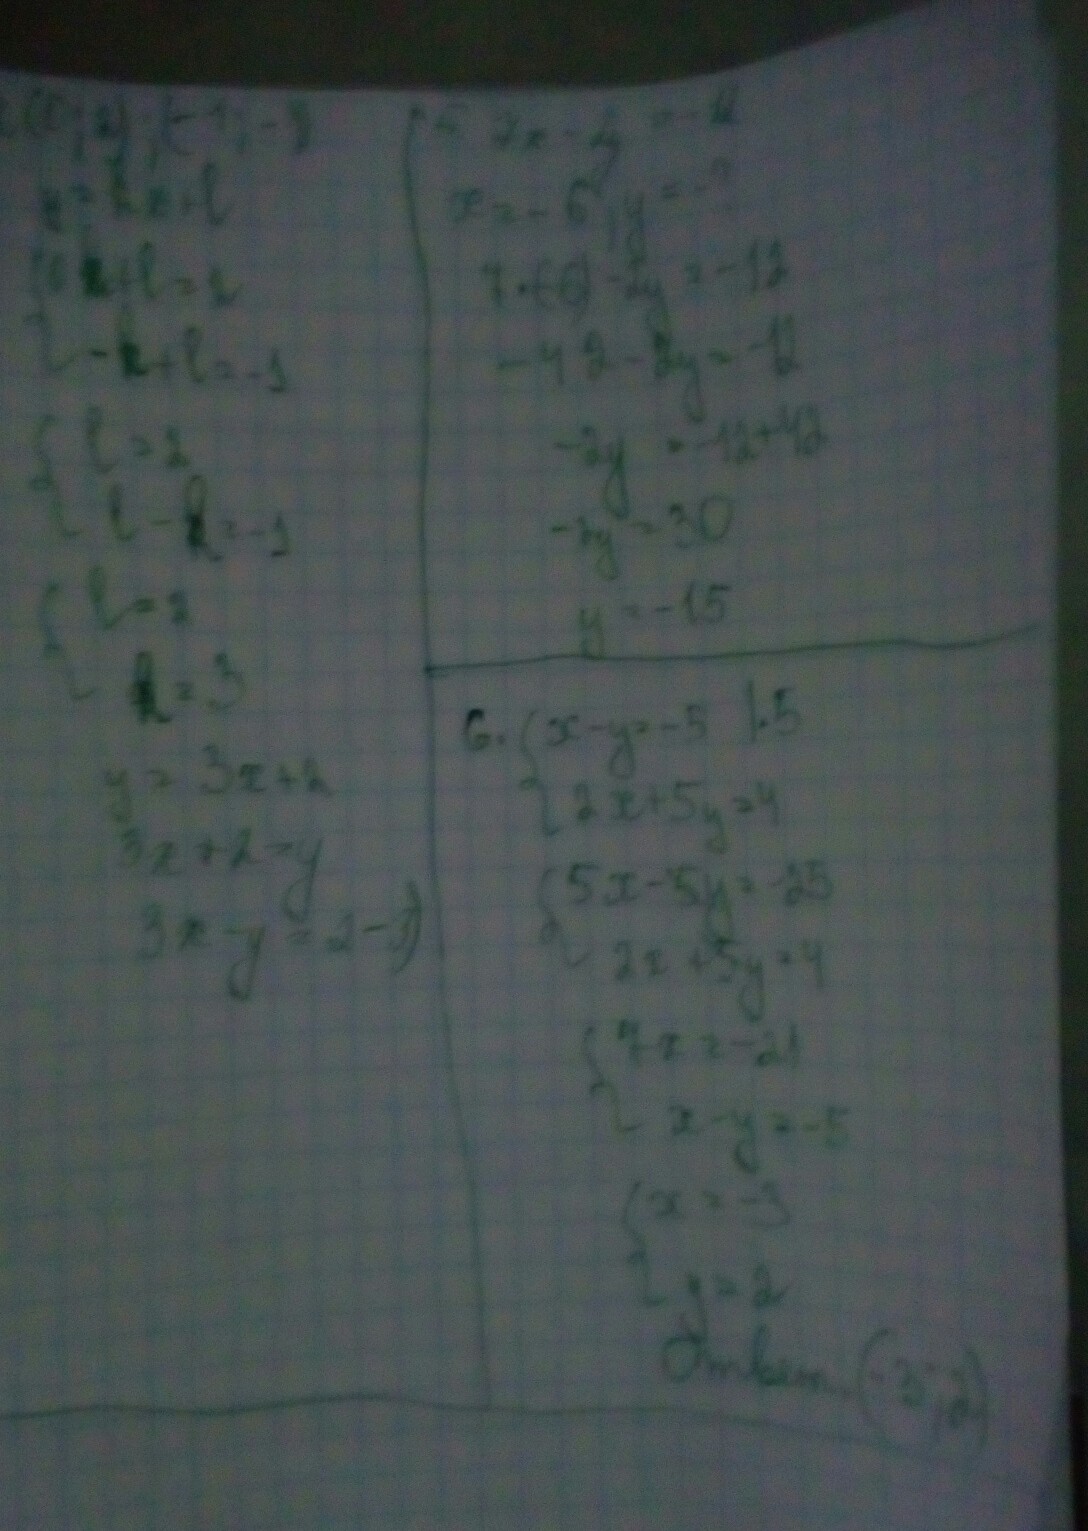 y = kx + l
-k + l = -1
l = 2
l - k = -1
l = 2
k = 3
y = 3x + 2
3x + 2 = y
7x - 2y = -12
x = -6, y = -?
7·(-6) - 2y = -12
-42 - 2y = -12
-2y = -12 + 42
-2y = 30
y = -15
6. { x - y = -5 |·5
2x + 5y = 4
{ 5x - 5y = -25
2x + 5y = 4
{ 7x = -21
x - y = -5
{ x = -3
y = 2
Ответ (-3; 2)